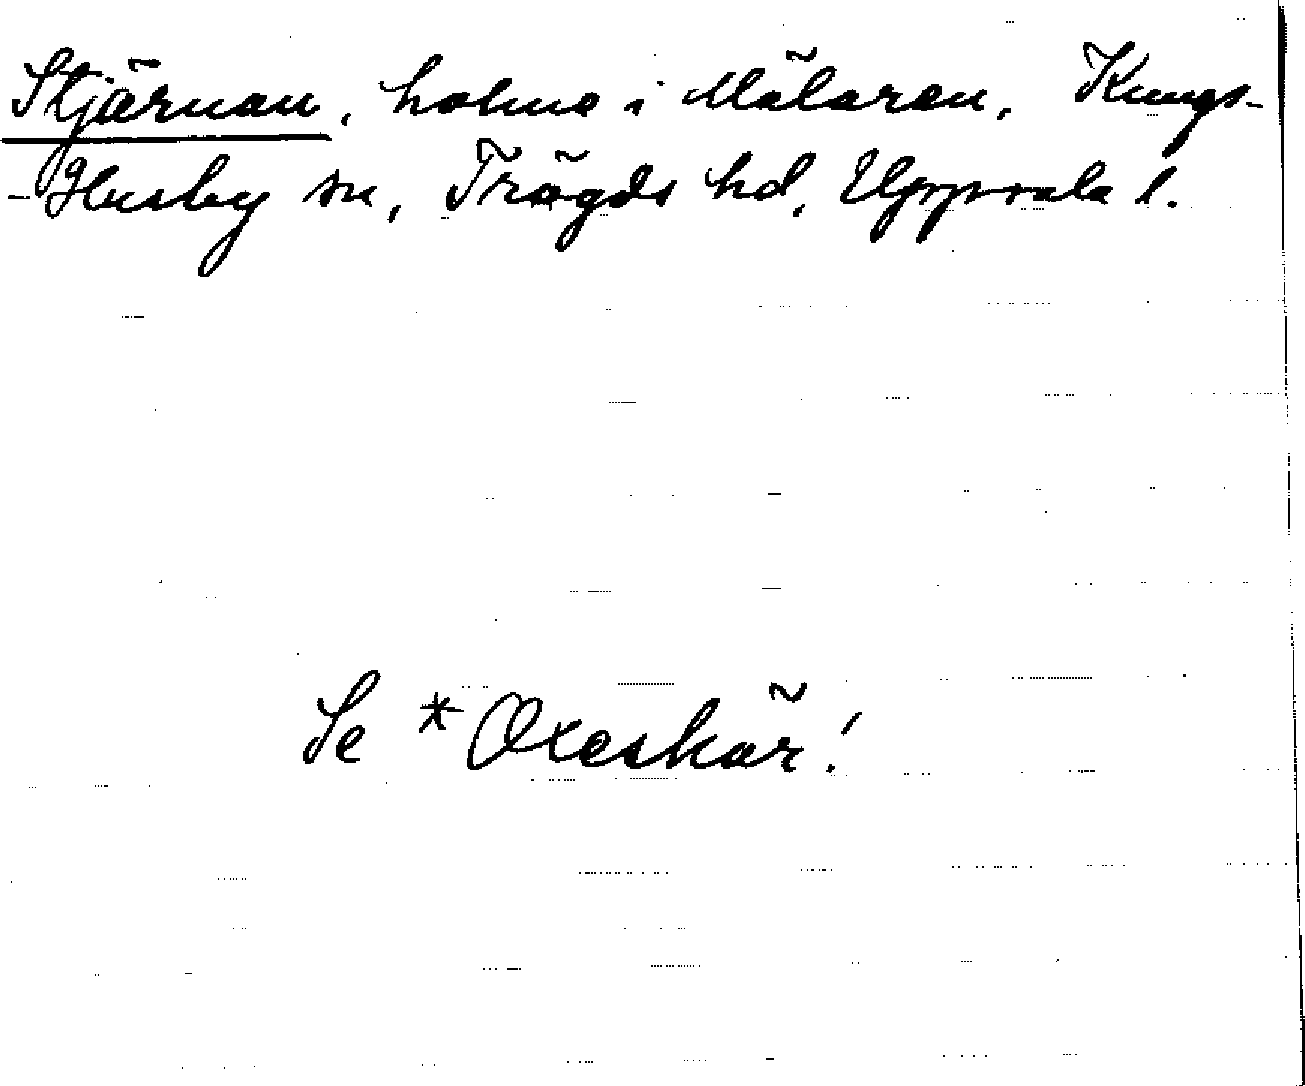 Stjärnan, holme i Mälaren, Kungs-
-Husby sn, Trögds hd, Uppsala l.
Se *Oxeskär!